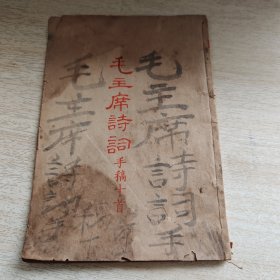 毛主席詩詞手
毛主席詩詞手稿十首
毛主席詩詞